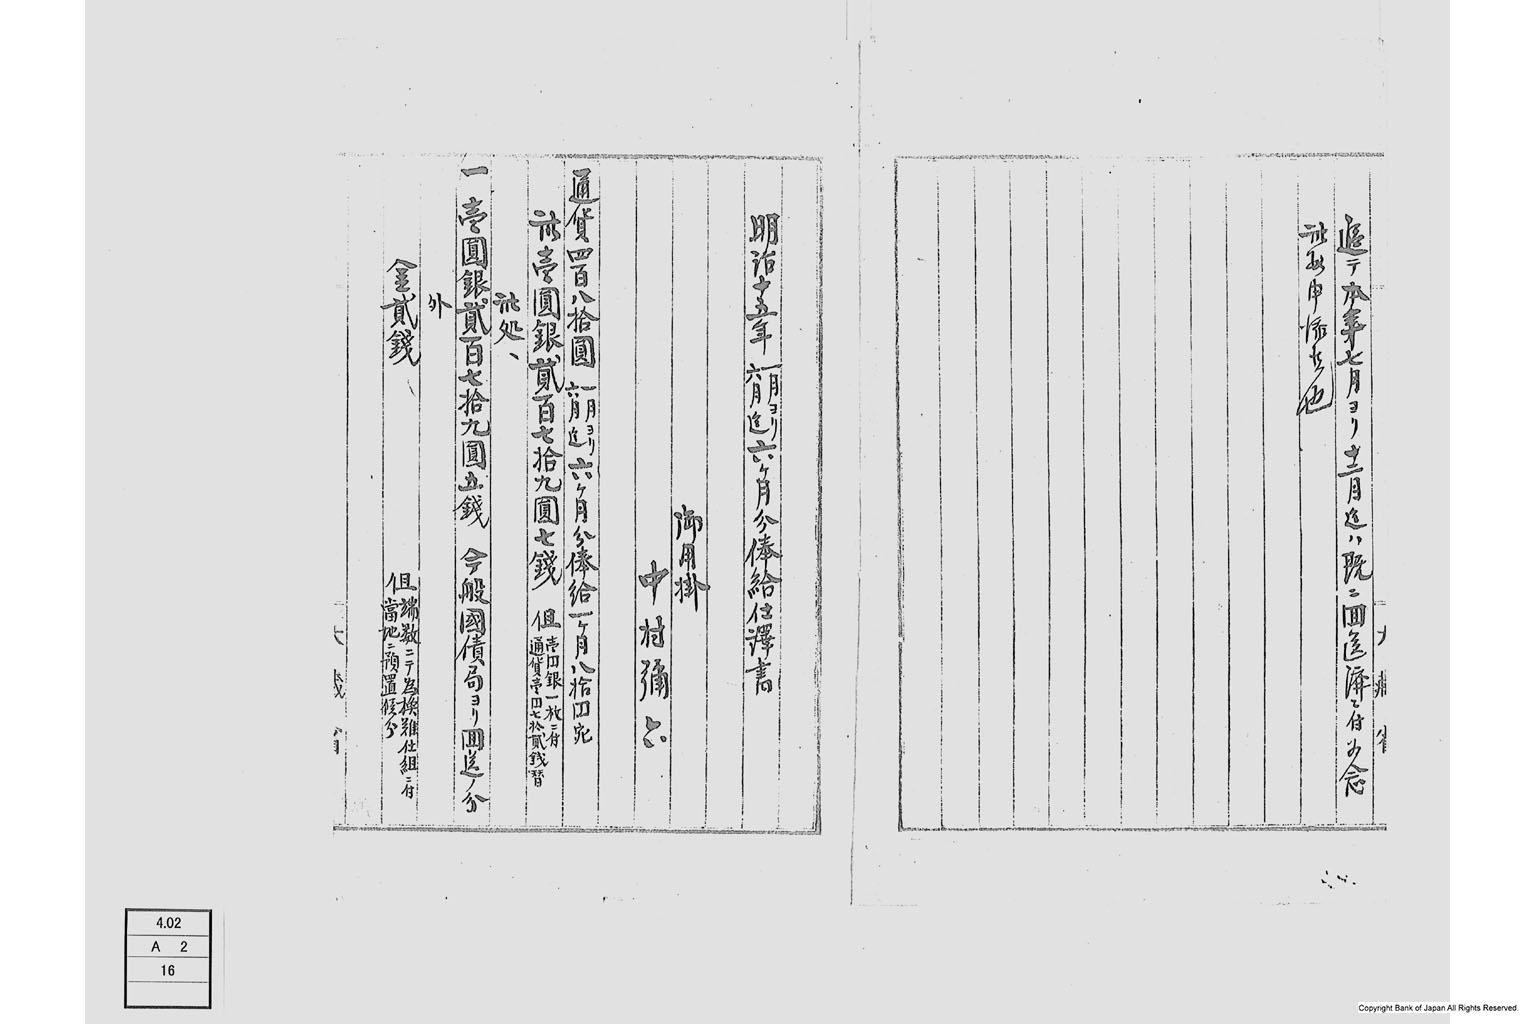 追テ本年七月ヨリ十二月迄ハ既ニ回送済ニ付為念
此段申添候也
大蔵省
明治十五年一月ヨリ六月迄六ヶ月分俸給仕譯書
御用掛
中村彌六
通貨四百八拾圓一月ヨリ六月迄六ヶ月分俸給一ヶ月八拾円宛
此壱圓銀貳百七拾九圓七錢 但壱円銀一枚ニ付通貨壱円七拾貳銭替
此処、
一壱圓銀貳百七拾九圓五錢 今般國債局ヨリ回送ノ分
外
金貳錢 但端数ニテ為換難仕組ニ付當地ニ預置候分
大蔵省
4.02
A 2
16
Copyright Bank of Japan All Rights Reserved.